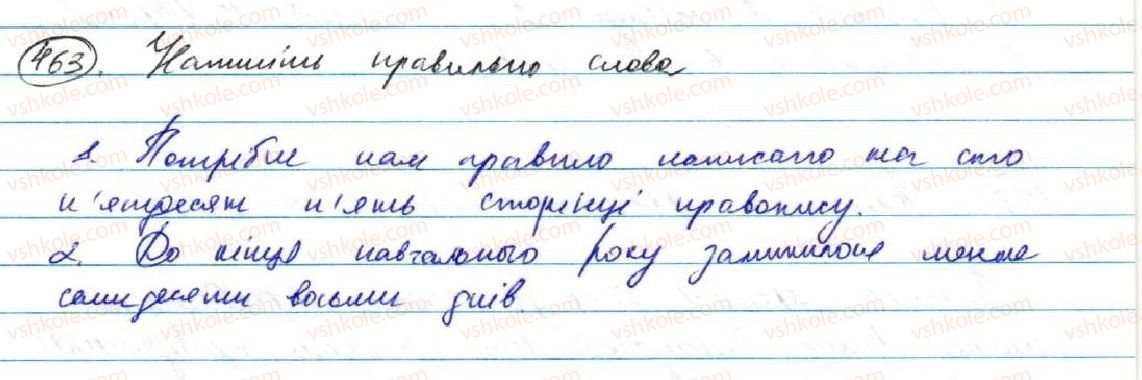 463. Напишіть правильно слова
1. Потрібне нам правило написано на сто
п'ятдесят п'ять сторінці правопису.
2. До кінця навчального року залишилося менше
семидесяти восьми днів.
vshkole.com